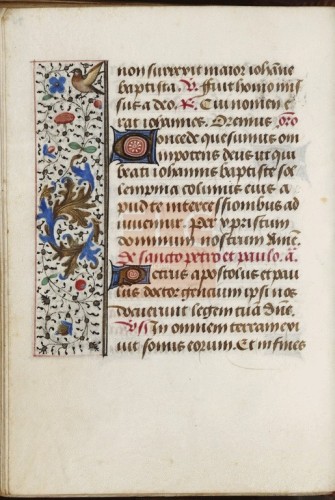 non surrexit maior iohane
baptista. V. ffuit homo mis
sus a deo. R. Cui nomen e
rat iohannes. Oremus oro
Concede quesumus om
nipotens deus ut qui
beati iohannis baptiste so
lempnia colimus eius a
pud te intercessionibus ad
iuuemur. Per xpristum
dominum nostrum Amē.
De sancto petro et paulo. ā.
Petrus apostolus et pau
lus doctor gencium ipsi nos
docuerunt legem tuā dñe.
Vsi In omnem terram exi
uit sonus eorum. Et in fines